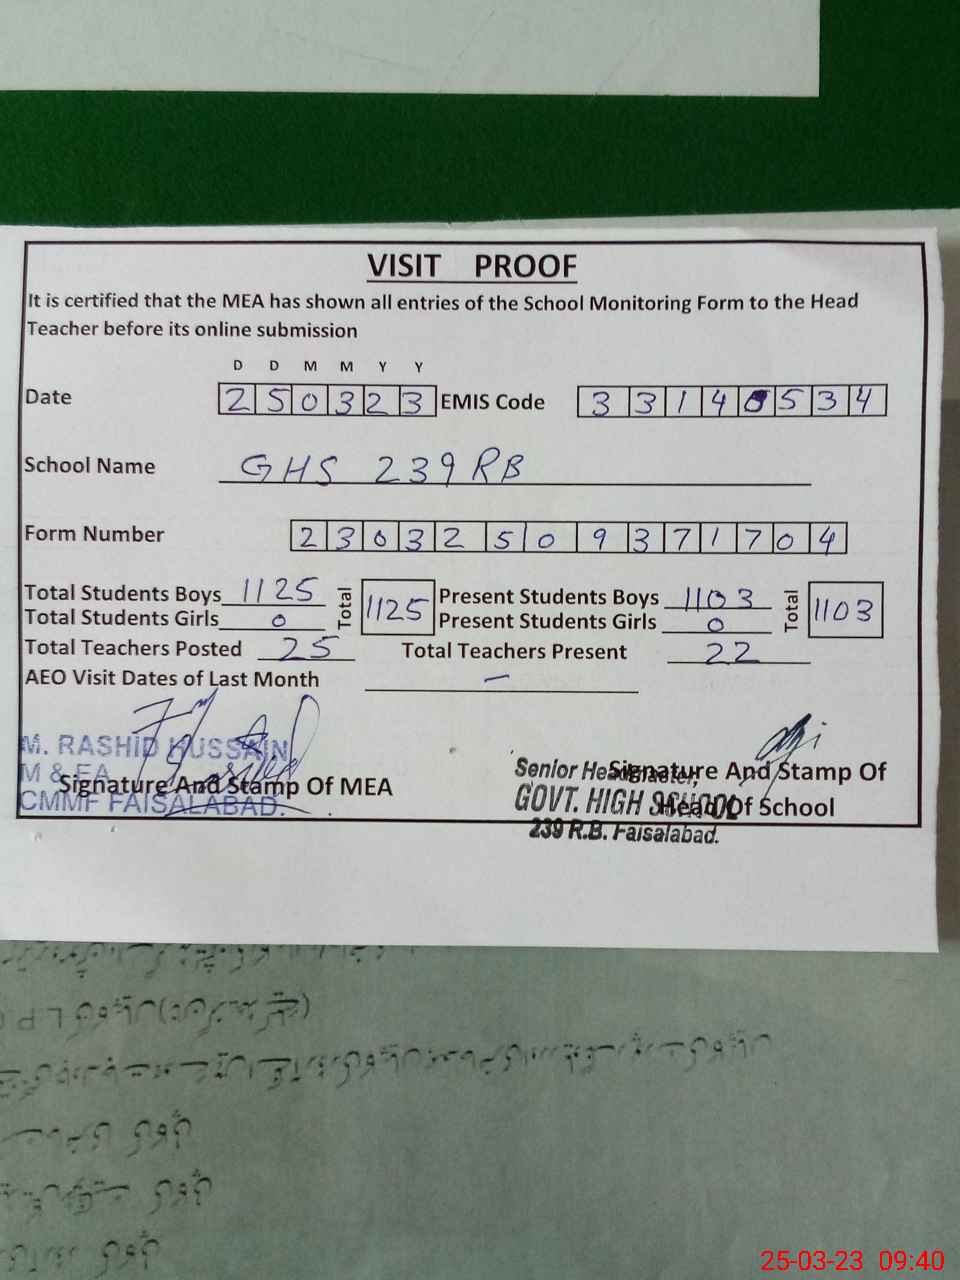 VISIT PROOF
It is certified that the MEA has shown all entries of the School Monitoring Form to the Head
Teacher before its online submission
D D M M Y Y
Date 2 5 0 3 2 3 EMIS Code 3 3 1 4 0 5 3 4
School Name GHS 239 RB
Form Number 2 3 0 3 2 5 0 9 3 7 1 7 0 4
Total Students Boys 1125 Total 1125 Present Students Boys 1103 Total 1103
Total Students Girls 0 Present Students Girls 0
Total Teachers Posted 25 Total Teachers Present 22
AEO Visit Dates of Last Month –
M. RASHID HUSSAIN
M & EA
CMMF FAISALABAD.
Signature And Stamp Of MEA
Senior Headmaster,
GOVT. HIGH SCHOOL
239 R.B. Faisalabad.
Signature And Stamp Of
Head Of School
25-03-23 09:40